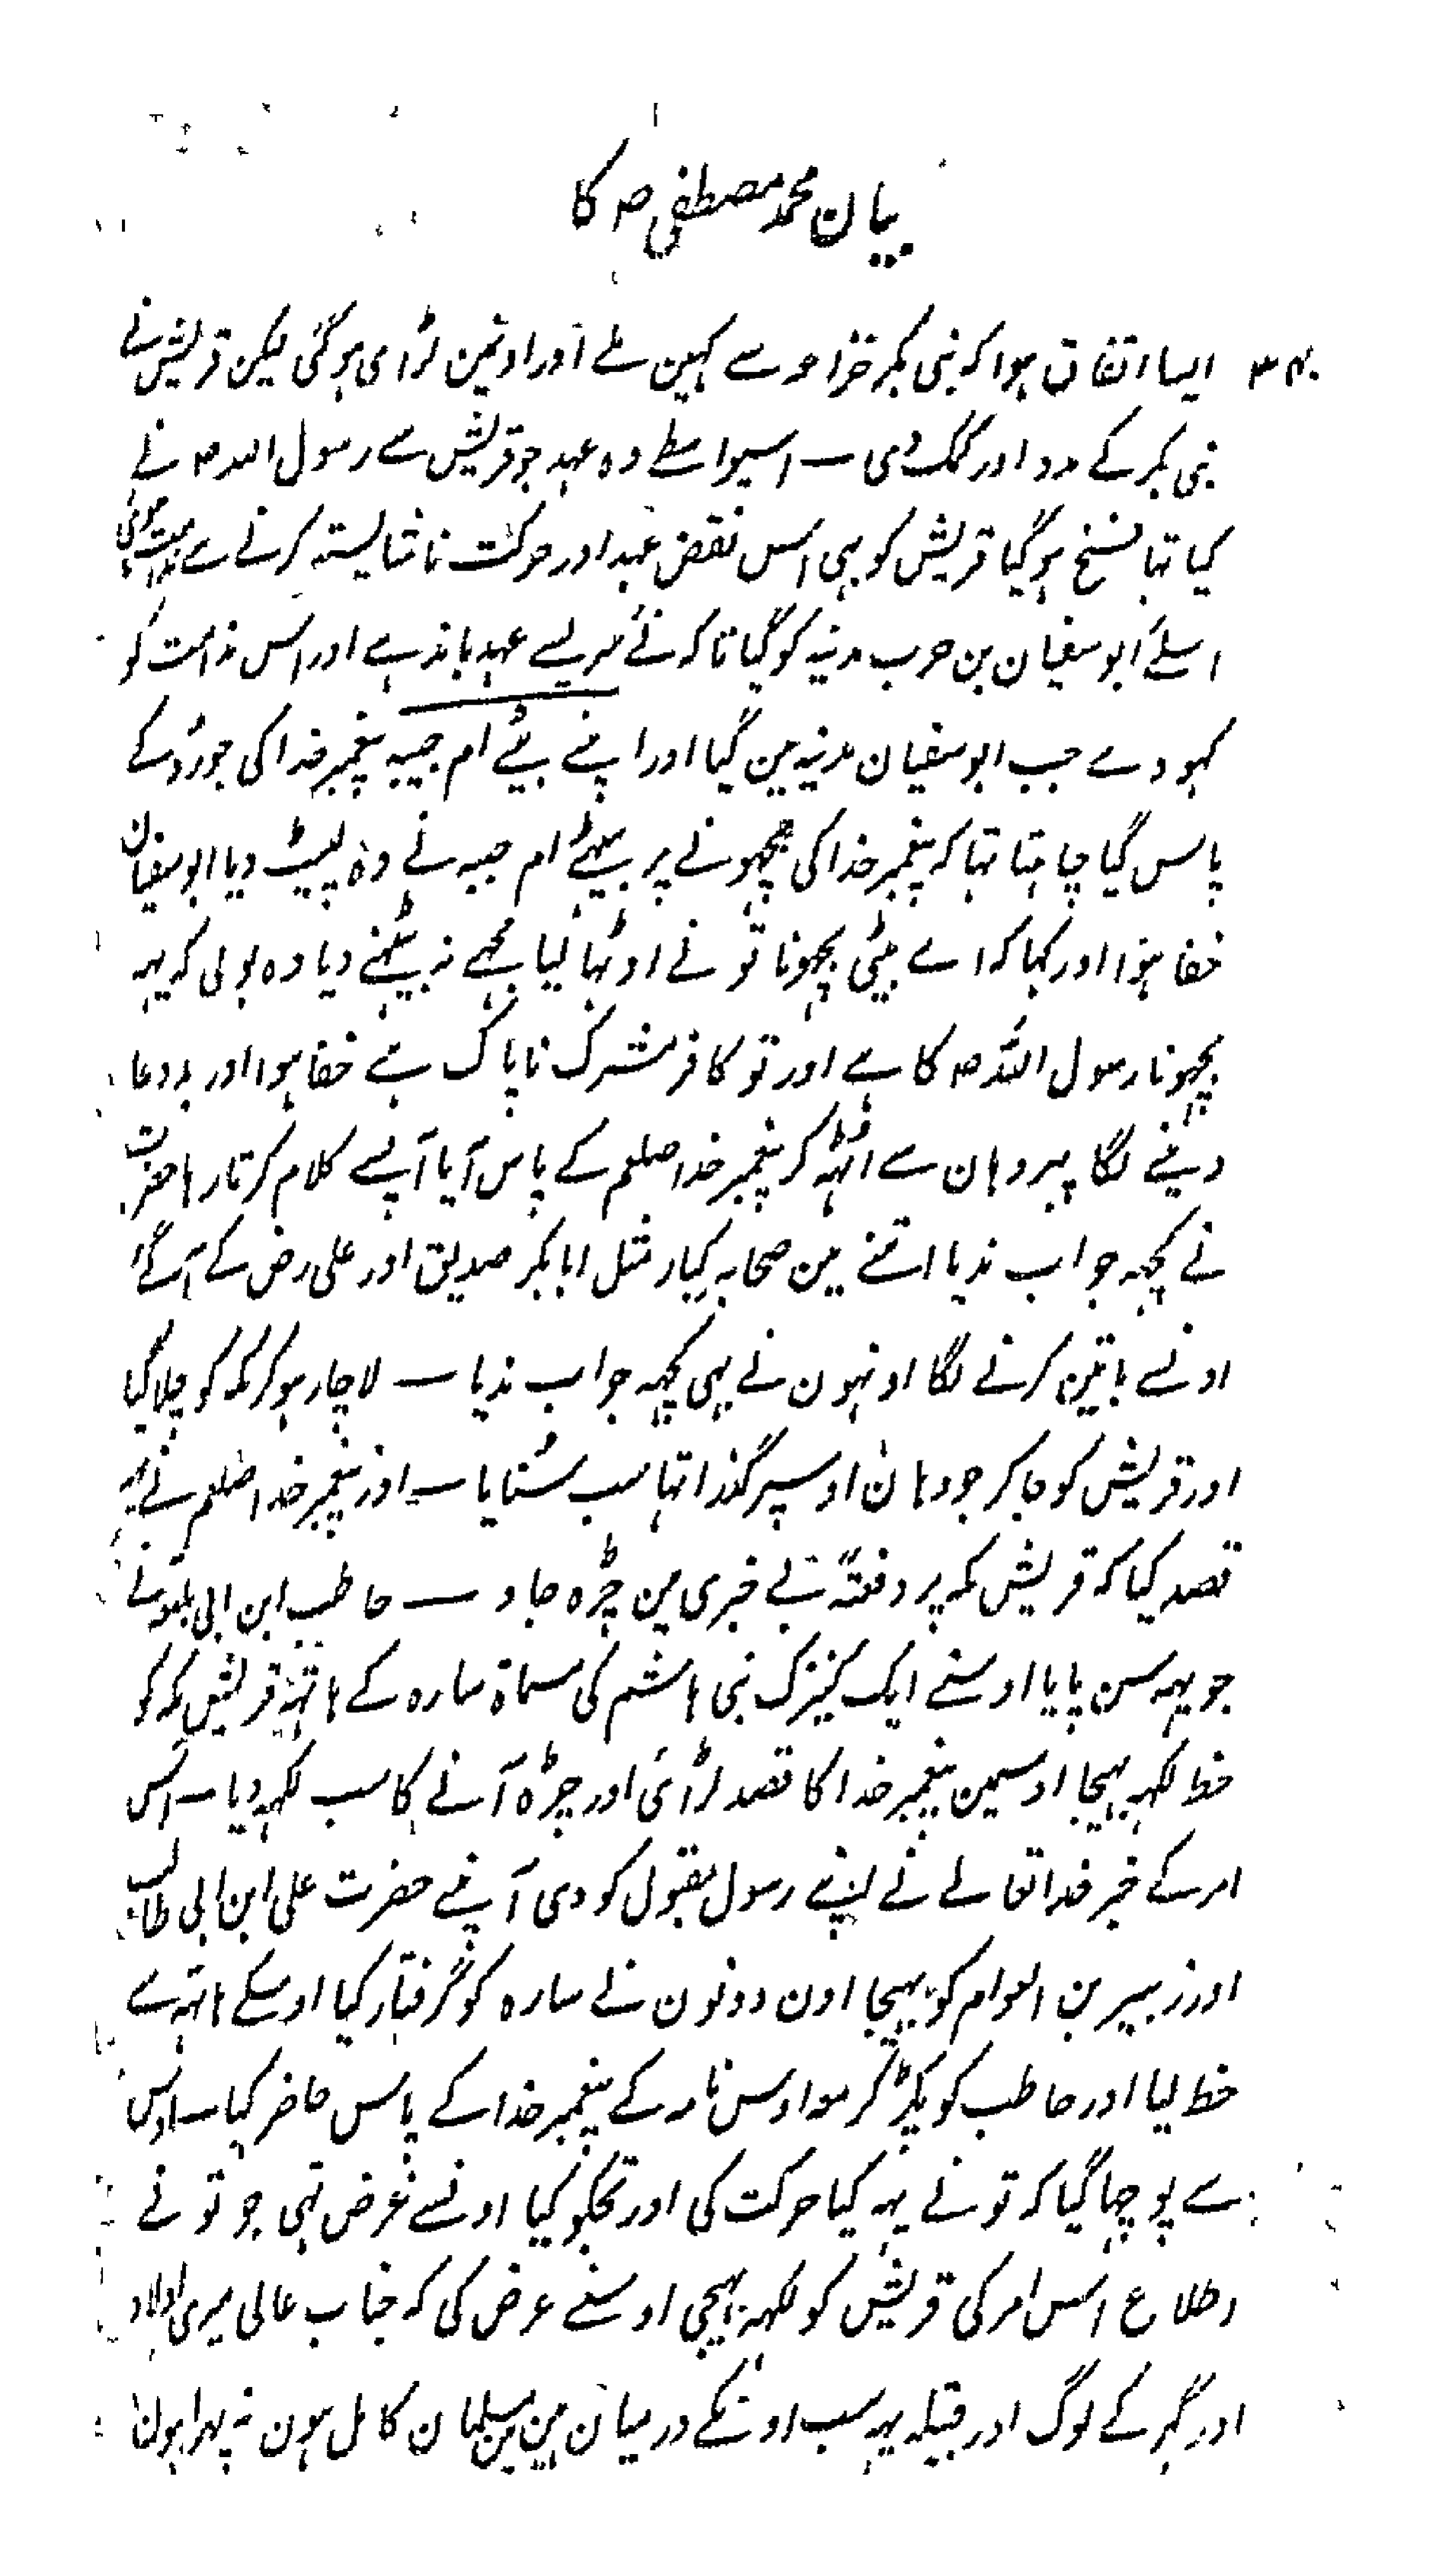 بیان محمد مصطفی ص کا
۳۴۰ ایسا اتفاق ہوا کہ بنی بکر خزاعہ سے کہین ملے اور اونمین لڑای ہوگئی لیکن قریش نے
بنی بکر کے مدد اور کمک دی ــ اسیواسطے وہ عہد جو قریش سے رسول اللہ ص نے
کیا تہا فسخ ہوگیا قریش کو بہی اس نقض عہد اور حرکت ناشایستہ کرنے سے ندامت ہوئی
اسلئے ابو سفیان بن حرب مدینہ کو گیا تاکہ نئے سر یسے عہد باندہے اور اس ندامت کو
کہووے جب ابو سفیان مدینہ مین گیا اور اپنے بیٹے ام حبیبہ پیغمبر خدا کی جورؤ کے
پاس گیا چاہتا تہا کہ پیغمبر خدا کی بچہونے پر بیٹہے ام حبیبہ نے وہ لپیٹ دیا ابو سفیان
خفا ہوا اور کہا کہ اے بیٹی بچہونا تو نے اوٹہا لیا مجہے نہ بیٹہنے دیا وہ بولی کہ یہہ
بچہونا رسول اللہ ص کا ہے اور تو کافر مشرک ناپاک ہے خفا ہوا اور بددعا
دینے لگا پہر وہان سے اٹہہ کر پیغمبر خدا صلعم کے پاس آیا آپسے کلام کرتا رہا حضرت
نے کچہہ جواب ندیا اتنے مین صحابہ کبار مثل ابابکر صدیق اور علی رض کے آگئے
اونسے باتین کرنے لگا اونہون نے بہی کچہہ جواب ندیا ــ لاچار ہوکر مکہ کو چلا گیا
اور قریش کو جاکر جو وہان اوسپر گذرا تہا سب سنایا ــ اور پیغمبر خدا صلعم نے یہہ
قصد کیا کہ قریش مکہ پر دفعتہً بے خبری مین چڑہ جاوے ــ حاطب ابن ابی بلتعہ نے
جو یہہ سن پایا اوسنے ایک کنیزک بنی ہاشم کی مسماۃ سارہ کے ہاتہہ قریش مکہ کو
خط لکہہ بہیجا اوسمین پیغمبر خدا کا قصد لڑائی اور چڑہ آنے کا سب لکہہ دیا ــ اس
امر کے خبر خدا تعالے نے اپنے رسول مقبول کو دی آپنے حضرت علی ابن ابی طالب
اور زبیر بن العوام کو بہیجا اون دونون نے سارہ کو گرفتار کیا اوسکے ہاتہہ سے
خط لیا اور حاطب کو پکڑ کر معہ اوس نامہ کے پیغمبر خدا کے پاس حاضر کیا ــ اوس
سے پوچہا گیا کہ تو نے یہہ کیا حرکت کی اور تجکو کیا اونسے غرض تہی جو تو نے
اطلاع اس امر کی قریش کو لکہہ بہیجی اوسنے عرض کی کہ جناب عالی میری اولاد
اور گہر کے لوگ اور قبیلہ یہہ سب اونکے درمیان مین ہین مسلمان کامل ہون نہ پہرا ہون